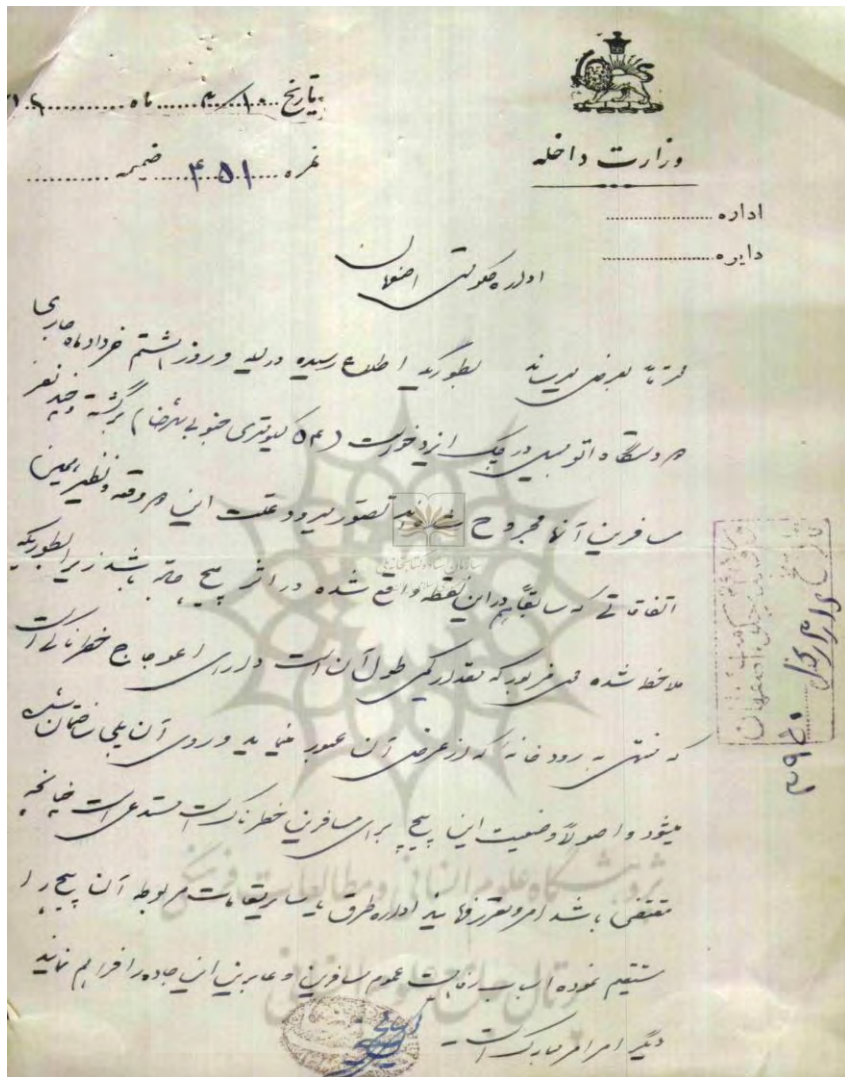 وزارت داخله
اداره
دایره
تاریخ ۱۰ / ۳ ماه
نمره ۴۵۱ ضمیمه
اداره حکومتی اصفهان
محترماً بعرض میرساند بطوریکه اطلاع رسیده در لیله و روز هشتم خرداد ماه جاری
دو دستگاه اتومبیل در ایزدخواست (۵۴ کیلومتری جنوبی شهرضا) برگشته و چند نفر
مسافرین آنها مجروح شده‌اند تصور میرود علت این دو وقعه و نظیر همین
اتفاقاتی که سابقاً هم در این نقطه واقع شده در اثر پیچ جاده باشد زیرا بطوریکه
ملاحظه شده مزبور که مقدار کمی طول آن است دارای اعوجاج خطرناکی است
که منتهی به رودخانه‌ای که از عرض آن عبور مینماید و روی آن پلی ساختمان شده
میشود و اصولاً وضعیت این پیچ برای مسافرین خطرناک است مستدعی است چنانچه
مقتضی باشد امر و مقرر فرمایند اداره طرق با سایر مقامات مربوطه آن پیچ را
مستقیم نموده اسباب رفاهیت عموم مسافرین و عابرین این جاده را فراهم نمایند
دیگر امر امر مبارک است
پژوهشگاه علوم انسانی و مطالعات فرهنگی
پرتال جامع علوم انسانی